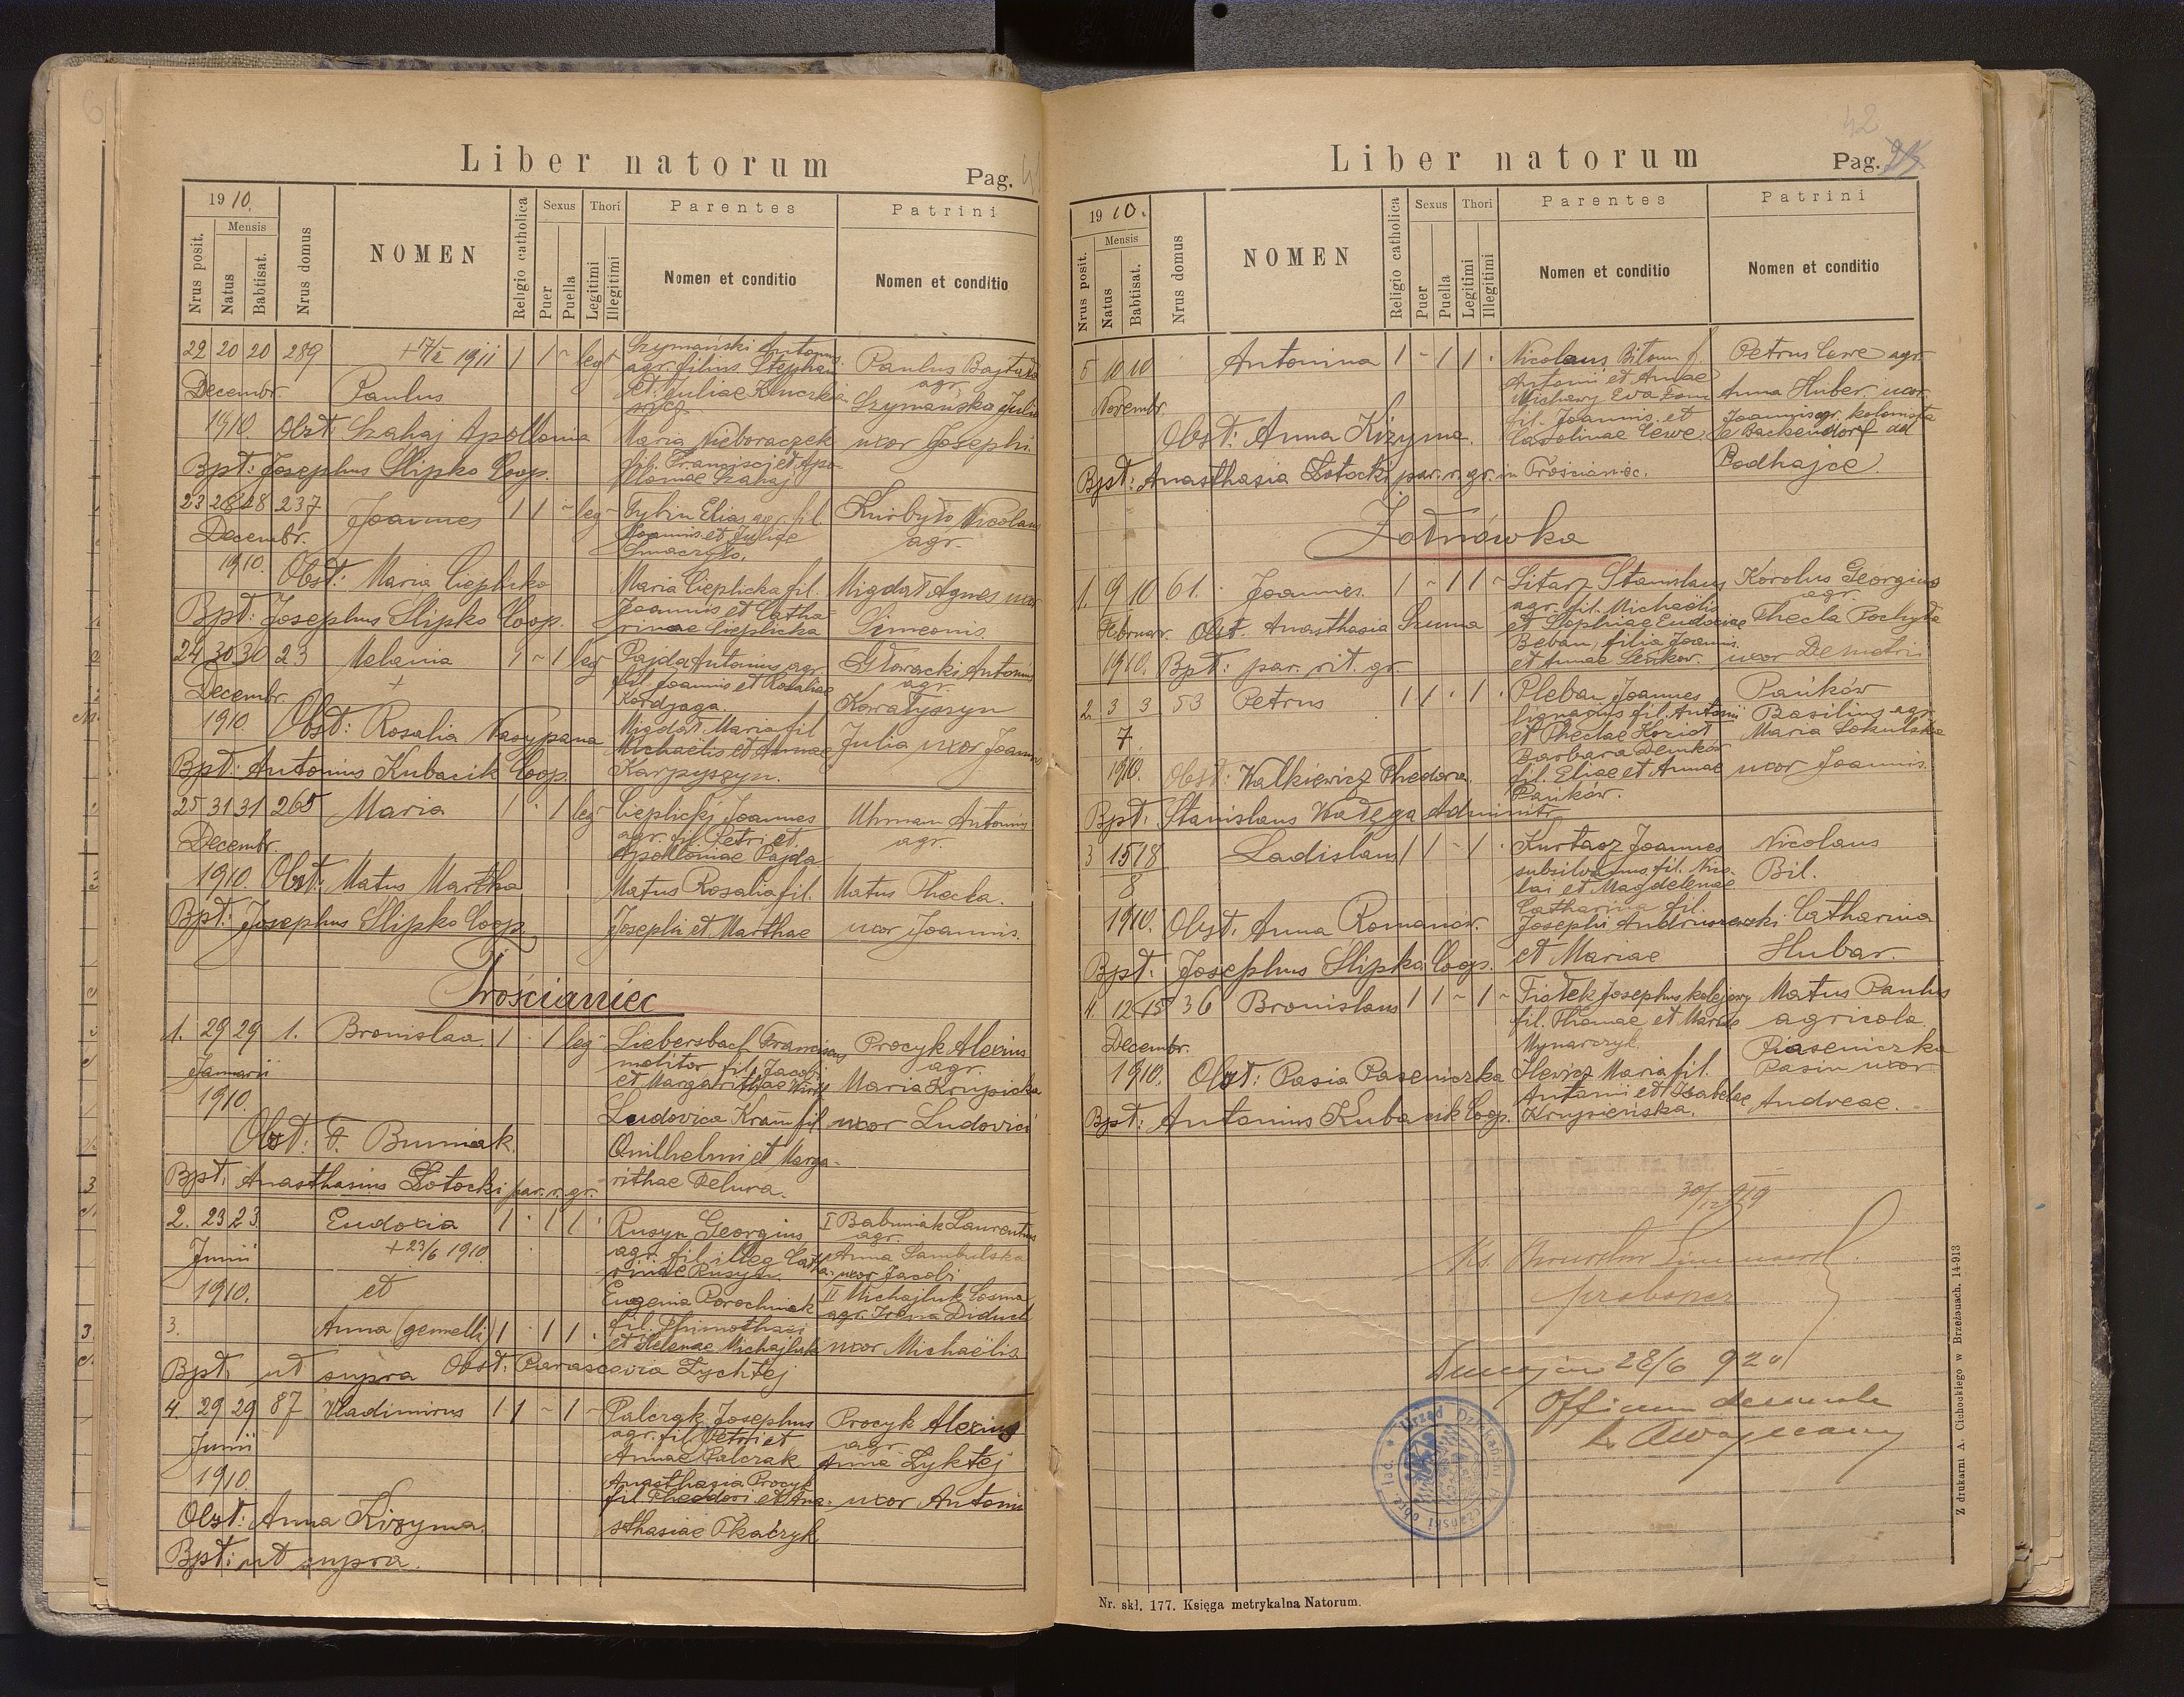 Liber natorum
Pag. 41
1910.
Mensis
Nrus posit.
Natus
Babtisat.
Nrus domus
NOMEN
Religio catholica
Sexus
Puer
Puella
Thori
Legitimi
Illegitimi
Parentes
Nomen et conditio
Patrini
Nomen et conditio
22 20 20 289 1 1 ~ leg Szymański Antonius
agr. filius Stephani Paulus
Decembr. Paulus et Juliae agr.
1910 Obst. Szahaj Apollonia Szymańska Julia
Maria Nieboraczek uxor Josephi.
Bpt: Josephus Slipko Coop. fil. Francisci et Apo-
lloniae Szahaj
23 28 28 237 Joannes 1 1 ~ leg Cybin Elias agr. fil. Nicolaus
Decembr. Joannis et Juliae agr.
1910. Obst: Maria Cieplicka Maria Cieplicka fil. Migdał Agnes uxor
Bpt: Josephus Slipko Coop. Joannis et Catha- Simeonis.
rinae Cieplicka
24 30 30 23 Melania 1 ~ 1 leg Pajda Antonius agr. Antonius
Decembr. + fil. Joannis et Rosaliae agr.
Kordjaga.
1910. Obst: Rosalia Nasypana Migdał Maria fil
Michaëlis et Annae Julia uxor Joannis
Bpt: Antonius Kubacik Coop. Karpyszyn.
25 31 31 265 Maria 1 · 1 leg Cieplicki Joannes Uhman Antonius
Decembr. agr. fil. Petri et agr.
Apolloniae Pajda
1910. Obst: Matus Martha Matus Rosalia fil. Matus Thecla.
Bpt: Josephus Slipko Coop. Josephi et Marthae uxor Joannis.
Trościaniec
1. 29 29 1. Bronislaa 1 · 1 leg Liebersbach Franciscus Procyk Alexius
Januarii molitor fil. Jacobi agr.
1910. et Margarithae Maria Krupicka
Ludovica fil uxor Ludovici
Obst: F. Buniak. Quilhelmi et Marga-
Bpt. Anasthasius Łotocki par. r. gr. rithae Felura.
2. 23 23 Eudoxia 1 · 1 1 · Rusyn Georgius I Babuniak Laurentius
Junii +23/6 1910 agr. fil. illeg. Catha- agr. Anna Sambulska
rinae Rusyn. uxor Jacobi
1910. et Eugenia Porochniak II Michajluk Cosma
3. Anna (gemelli) 1 · 1 1 · fil. Thimothaei agr. Irena Diduch
et Helenae Michajluk uxor Michaëlis
Bpt, ut supra Obst. Parascevia Zychtej
4. 29 29 87 Vladimirus 1 1 ~ 1 ~ Palczak Josephus Procyk Alexius
Junii agr. fil. Petri et agr.
1910. Annae Palczak Anna Zyktej
Anasthasia Procyk
fil Theodori et Ana- uxor Antonii
Obst: Anna Kizyma. sthasiae Tkaczyk
Bpt: ut supra.
Liber natorum
42
Pag.
1910.
Mensis
Nrus posit.
Natus
Babtisat.
Nrus domus
NOMEN
Religio catholica
Sexus
Puer
Puella
Thori
Legitimi
Illegitimi
Parentes
Nomen et conditio
Patrini
Nomen et conditio
5 10 10 Antonina 1 - 1 1 · Nicolaus f. Petrus Cewe agr.
Novembr. Antonii et Annae Anna Huber uxor
Eva
fil. Joannis et Joannis agr. kolonista
Obst: Anna Kizyma. Carolinae Cewe e Backendorf ad
Bpt: Anasthasia Łotocki par. r. gr. in Trościaniec. Podhajce.
Żołnówka
1. 9 10 61. Joannes. 1 ~ 1 1 ~ Litarz Stanislaus Korolus Georgius
agr. fil. Michaëlis agr.
Februar. Obst. Anasthasia Szuma et Sophiae Eudoxiae Thecla Pochyła
Beban, filia Joannis
1910. Bpt: par. rit. gr. et Annae uxor Demetrii
2. 3 3 53 Petrus 1 1 · 1 · Pleban Joannes Pańków
7 lignarius fil. Antonii Basilius agr
et Theclae Maria Sokulska
1910. Obst: Walkiewicz Theodora. Barbara Demków
fil. Eliae et Annae uxor Joannis.
Pańków.
Bpt. Stanislaus Wałęga Adminitr.
3 15 18 Ladislaus 1 1 - 1 · Kurtasz Joannes Nicolaus
8 fil. Nico- Bil.
lai et Magdelenae
1910. Obst. Anna Romanów. Catharina fil. Catharina
Josephi Andruszewski
Bpt: Josephus Slipko Coop. et Mariae Hubar.
4. 12 15 36 Bronislaus 1 1 ~ 1 ~ Fiołek Josephus kolejowy Matus Paulus
Decembr. fil. Thomae et Mariae agricola
Mynarczyk Piaseniczka
1910. Obst: Pasia Paseniczka Ilewicz Maria fil. Pasia uxor
Antonii et Isabelae Andreae.
Bpt: Antonius Kubacik Coop. Krupieńska.
30/12 919
proboszcz
28/6 920
Officium decanale
Urząd Dziekański
Z drukarni A. Cichockiego w Brzeżanach. 14-913
Nr. skł. 177. Księga metrykalna Natorum.